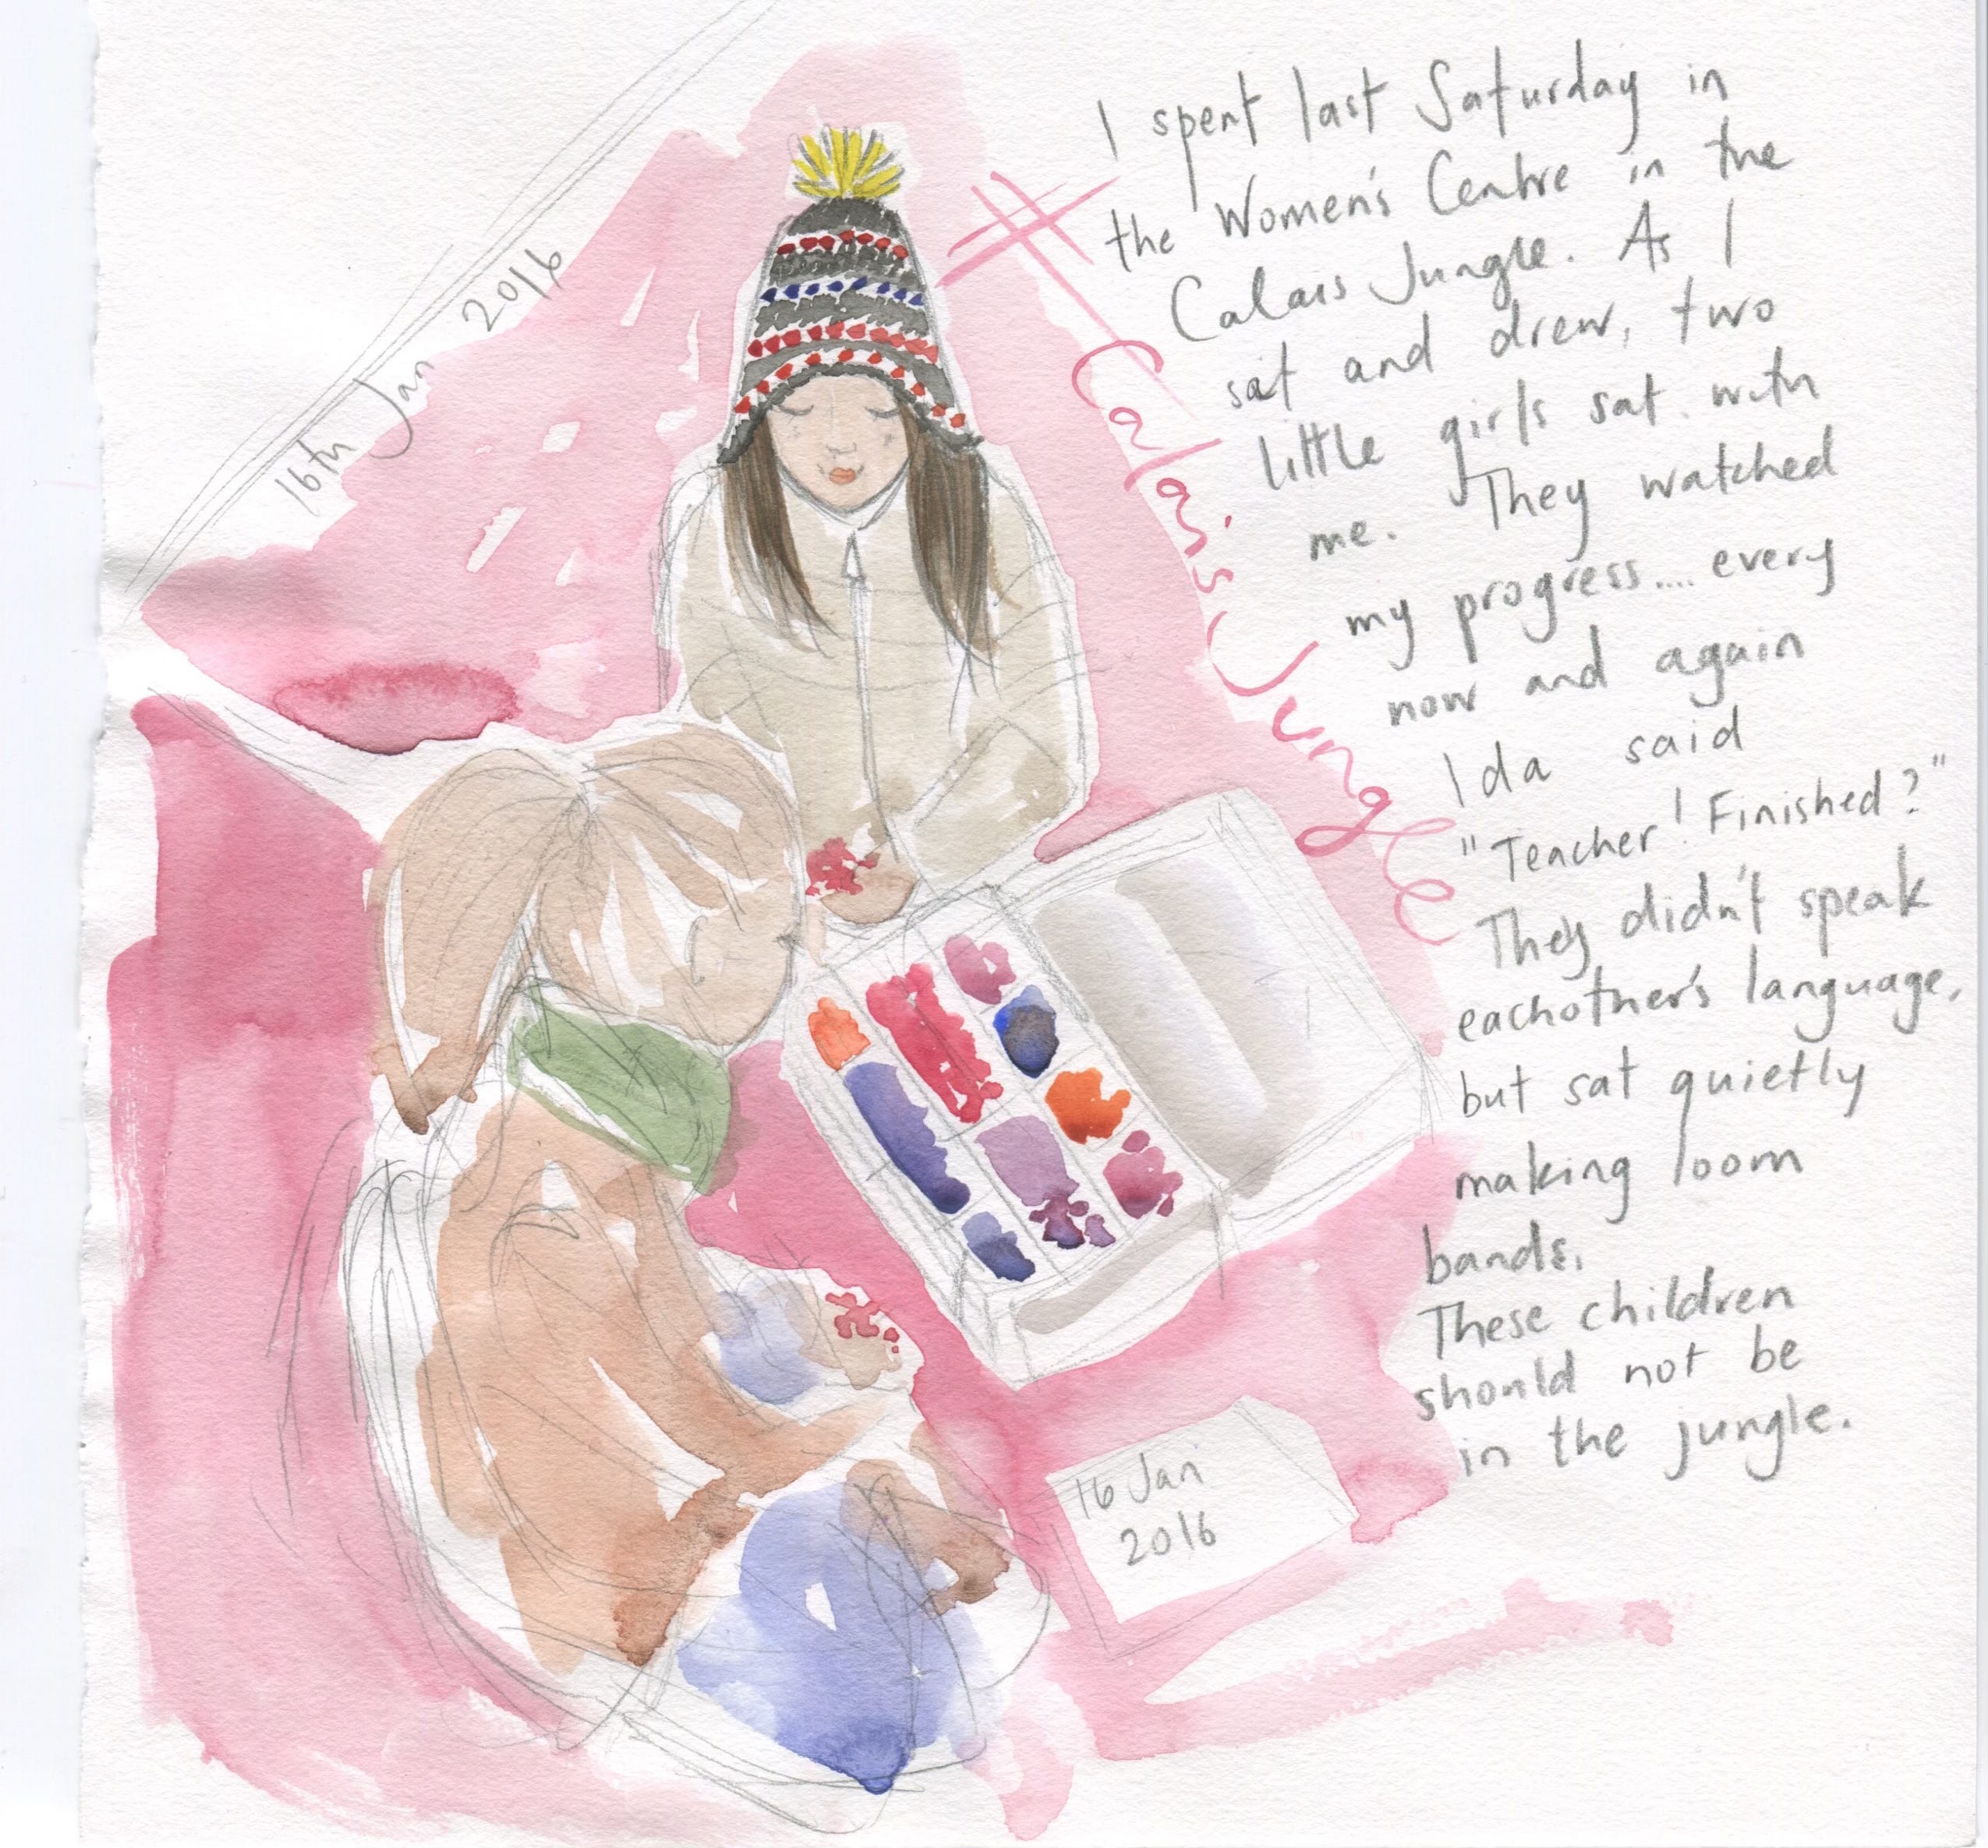 16th Jan 2016
# Calais Jungle
I spent last Saturday in
the Women's Centre in the
Calais Jungle. As I
sat and drew, two
little girls sat with
me. They watched
my progress.... every
now and again
Ida said
"Teacher! Finished?"
They didn't speak
eachother's language,
but sat quietly
making loom
bands.
These children
should not be
in the jungle.
16 Jan
2016